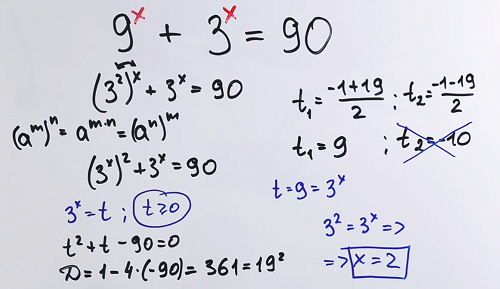 9^x + 3^x = 90
(3^2)^x + 3^x = 90
(a^m)^n = a^{m·n} = (a^n)^m
(3^x)^2 + 3^x = 90
3^x = t ; t ≥ 0
t^2 + t - 90 = 0
D = 1 - 4·(-90) = 361 = 19^2
t_1 = \frac{-1+19}{2} ; t_2 = \frac{-1-19}{2}
t_1 = 9 ; t_2 = -10
t = 9 = 3^x
3^2 = 3^x =>
=> x = 2